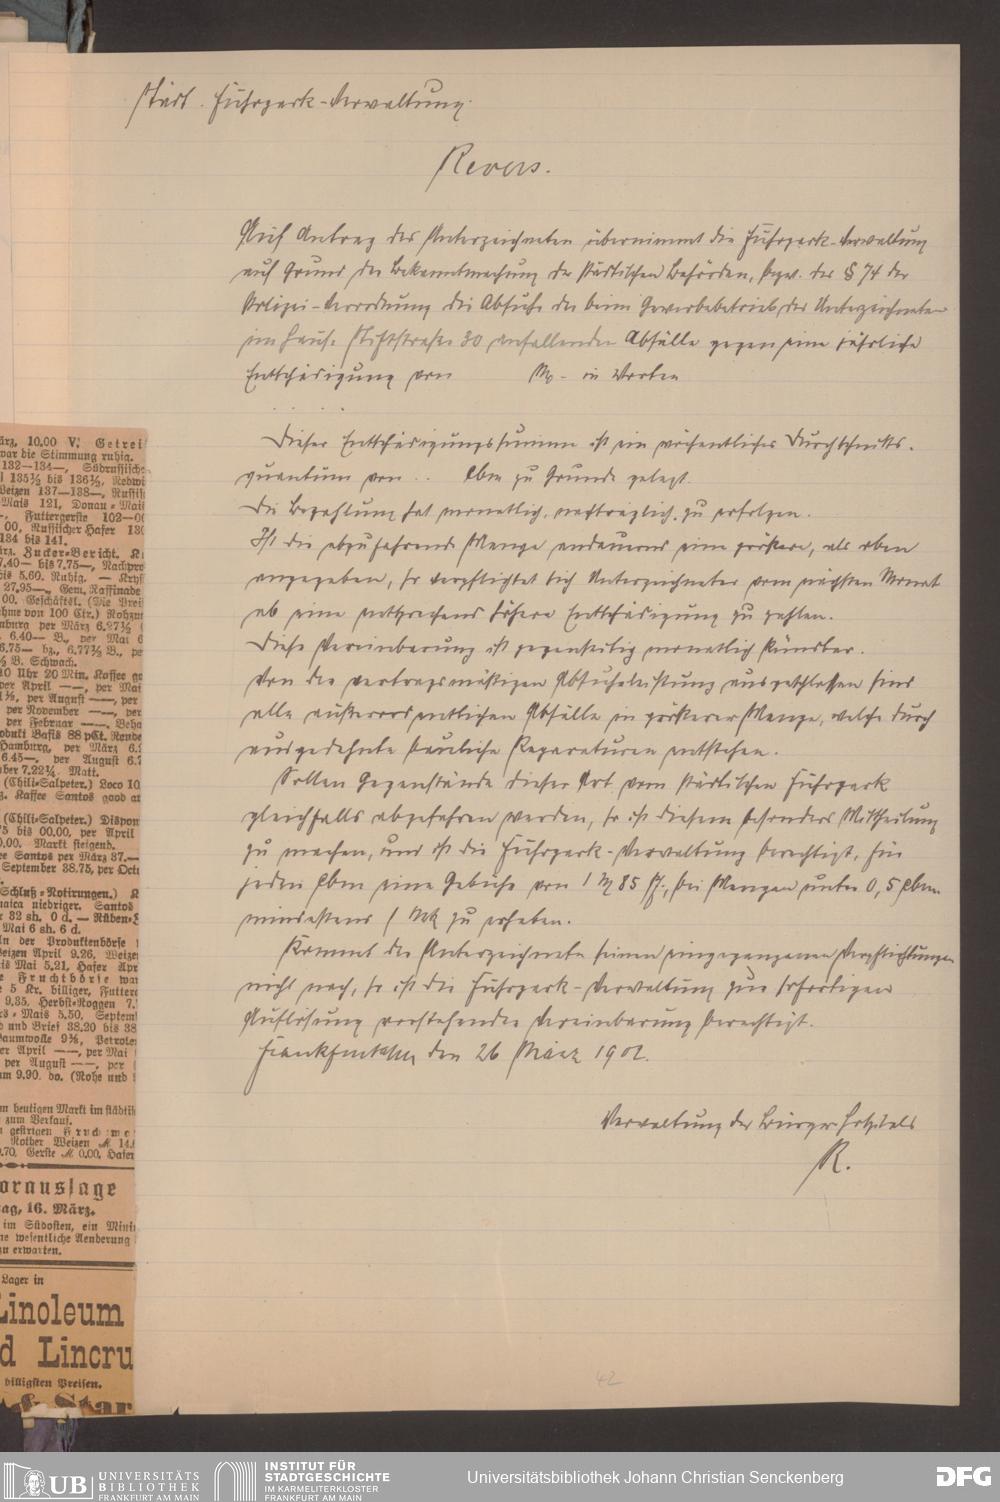 Städt. Fuhrpark-Verwaltung.
Revers.
Auf Antrag des Unterzeichneten übernimmt die Fuhrpark-Verwaltung
auf Grund der Bekanntmachung der städtischen Behörden, bezw. des § 74 der
Polizei-Verordnung die Abfuhr der beim Gewerbebetrieb des Unterzeichneten
im Hause Stiftstraße 30 anfallenden Abfälle gegen eine jährliche
Entschädigung von M - in Worten
Dieser Entschädigungssumme ist ein wöchentliches Durchschnitts-
quantum von .. Cbm zu Grunde gelegt.
Die Bezahlung hat monatlich, nachträglich zu erfolgen.
Ist die abzufahrende Menge andauernd eine größere, als oben
angegeben, so verpflichtet sich Unterzeichneter vom nächsten Monat
ab eine entsprechend höhere Entschädigung zu zahlen.
Diese Vereinbarung ist gegenseitig monatlich kündbar.
Von der vertragsmäßigen Abfuhrleistung ausgeschlossen sind
alle außerordentlichen Abfälle in größerer Menge, welche durch
ausgedehnte bauliche Reparaturen entstehen.
Sollen Gegenstände dieser Art vom städtischen Fuhrpark
gleichfalls abgefahren werden, so ist diesem besonders Mittheilung
zu machen, und ist die Fuhrpark-Verwaltung berechtigt, für
jeden Cbm eine Gebühr von 1 M 85 Pf., bei Mengen unter 0,5 Cbm
mindestens 1 Mk zu erheben.
Kommt der Unterzeichnete seinen eingegangenen Verpflichtungen
nicht nach, so ist die Fuhrpark-Verwaltung zur sofortigen
Auflösung vorstehender Vereinbarung berechtigt.
Frankfurt a/M den 26 März 1902.
Verwaltung des Bürgerhospitals
R.
42
ärz, 10.00 V. Getrei
war die Stimmung ruhig.
132—134—, Südrussische
135½ bis 136½, Redwi
Weizen 137—138—, Russi
Mais 121, Donau-Mai
Futtergerste 102—
00, Russischer Hafer 13
134 bis 141.
ärz. Zucker-Bericht. K
7.40— bis 7.75—, Nachpro
bis 5.60. Ruhig. — Krys
27.95—, Gem. Raffinade
00. Geschäftsl. (Die Prei
hme von 100 Ctr.) Rohzu
mburg per März 6.27½
6.40— B., per Mai 6
6.75— bz., 6.77½ B., pe
½ B. Schwach.
10 Uhr 20 Min. Kaffee go
per April —.—, per Mai
per August —.—, per
per November —.—, per
per Februar —.—. Beha
odukt Basis 88 pCt. Rende
Hamburg, per März 6.
6.45—, per August 6.
ber 7.22½. Matt.
(Chili-Salpeter.) Loco 10
z. Kaffee Santos good a
(Chili-Salpeter.) Dispon
75 bis 00.00, per April
0.00. Markt steigend.
ee Santos per März 37.—
September 38.75, per Octo
Schluß-Notirungen.) K
maica niedriger. Santos
32 sh. 0 d. — Rüben-
Mai 6 sh. 6 d.
An der Produktenbörse
eizen April 9.26, Weizen
is Mai 5.21, Hafer Apr
e Fruchtbörse war
e 5 Kr. billiger, Futter
9.35, Herbst-Roggen 7.
rs-Mais 5.50, Septem
d und Brief 38.20 bis 38
Baumwolle 9⅛, Petrole
er April —.—, per Mai
per August —.—, per
um 9.90. do. (Rohe und
m heutigen Markt im städtis
zum Verkauf.
gestrigen Fruchtmar
Rother Weizen M 14.
.70, Gerste M 0.00, Hafer
oraussage
ag, 16. März.
im Südosten, ein Mini
ne wesentliche Aenderung
zu erwarten.
Lager in
Linoleum
d Lincru
billigsten Preisen.
& Star
UB UNIVERSITÄTS
BIBLIOTHEK
FRANKFURT AM MAIN
INSTITUT FÜR
STADTGESCHICHTE
IM KARMELITERKLOSTER
FRANKFURT AM MAIN
Universitätsbibliothek Johann Christian Senckenberg
DFG